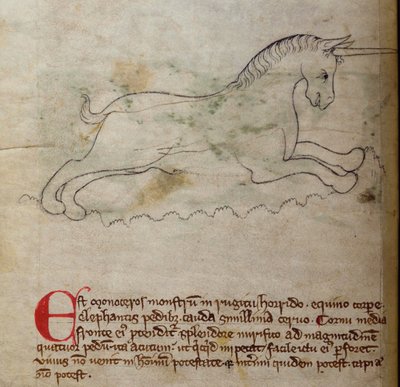 Est monoceros monstrũ mugitu horrido · equino corpe
elephantis pedibꝫ cauda simillima ceruo · Cornu media
fronte eiꝰ ptendit᷑ splendore mirifico ad magnitudinē
quatuor pedū ita acutum · ut qͥcqͥd inpetit facile ictu eiꝰ pforet ·
Viuus nō uenit in hoīm potestate · ⁊ int̾imi quidē potest · capi a
nō potest ·